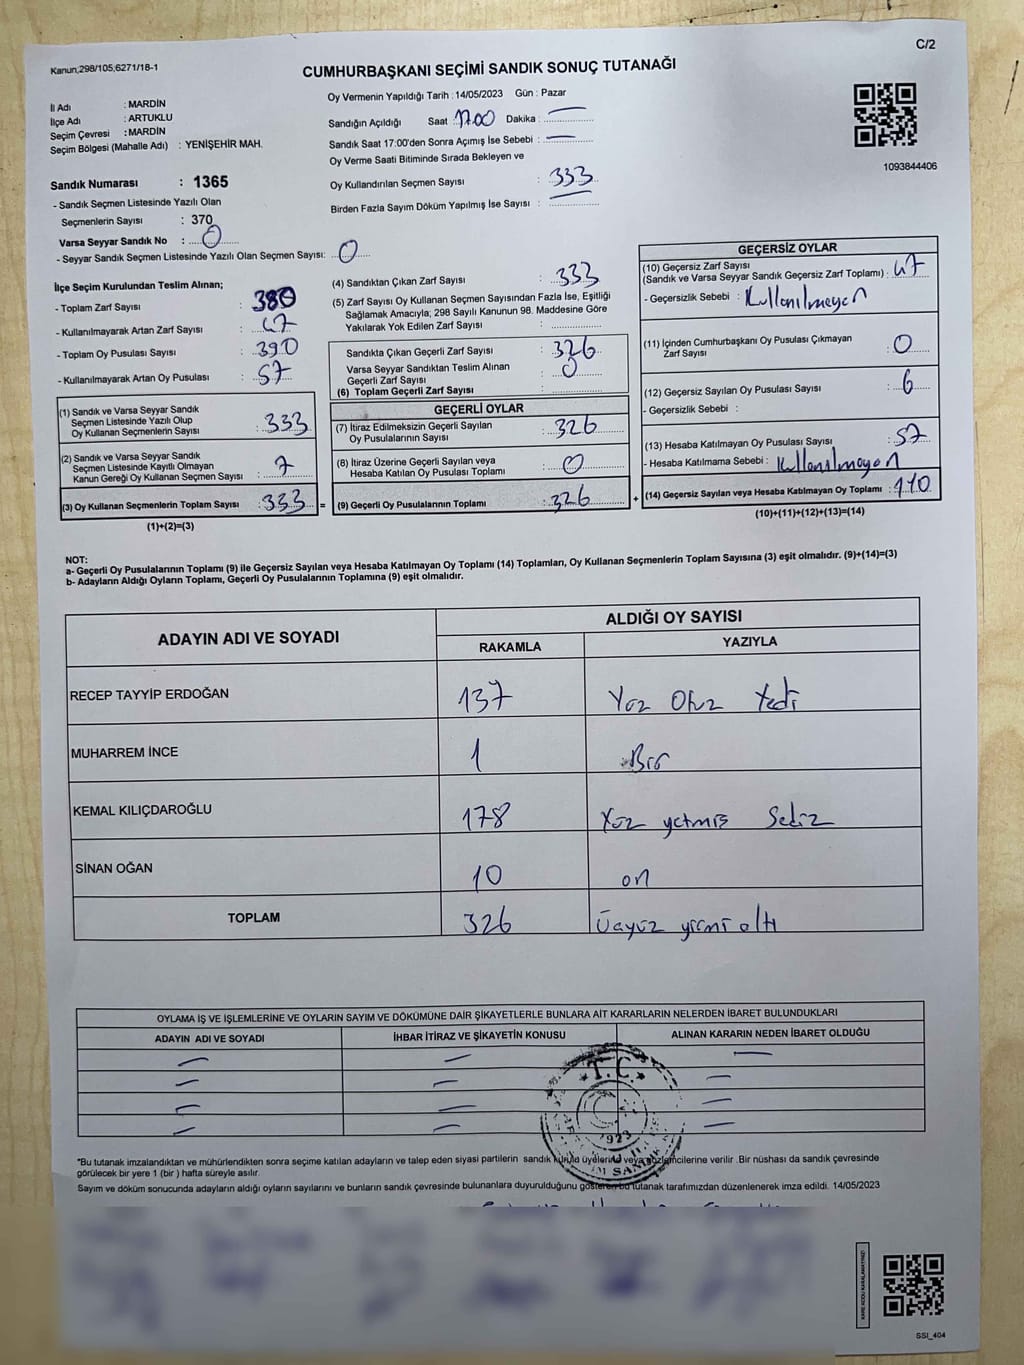 C/2
Kanun;298/105,6271/18-1
CUMHURBAŞKANI SEÇİMİ SANDIK SONUÇ TUTANAĞI
İl Adı : MARDİN
İlçe Adı : ARTUKLU
Seçim Çevresi : MARDİN
Seçim Bölgesi (Mahalle Adı) : YENİŞEHİR MAH.
Sandık Numarası : 1365
- Sandık Seçmen Listesinde Yazılı Olan
Seçmenlerin Sayısı : 370
Varsa Seyyar Sandık No : 0
- Seyyar Sandık Seçmen Listesinde Yazılı Olan Seçmen Sayısı: 0
Oy Vermenin Yapıldığı Tarih : 14/05/2023 Gün : Pazar
Sandığın Açıldığı Saat : 17.00 Dakika : —
Sandık Saat 17:00'den Sonra Açımış İse Sebebi : —
Oy Verme Saati Bitiminde Sırada Bekleyen ve
Oy Kullandırılan Seçmen Sayısı : 333
Birden Fazla Sayım Döküm Yapılmış İse Sayısı : —
1093844406
İlçe Seçim Kurulundan Teslim Alınan;
- Toplam Zarf Sayısı : 380
- Kullanılmayarak Artan Zarf Sayısı : 47
- Toplam Oy Pusulası Sayısı : 390
- Kullanılmayarak Artan Oy Pusulası : 57
(1) Sandık ve Varsa Seyyar Sandık
Seçmen Listesinde Yazılı Olup
Oy Kullanan Seçmenlerin Sayısı : 333
(2) Sandık ve Varsa Seyyar Sandık
Seçmen Listesinde Kayıtlı Olmayan
Kanun Gereği Oy Kullanan Seçmen Sayısı : 7
(3) Oy Kullanan Seçmenlerin Toplam Sayısı : 333 =
(1)+(2)=(3)
(4) Sandıktan Çıkan Zarf Sayısı : 333
(5) Zarf Sayısı Oy Kullanan Seçmen Sayısından Fazla İse, Eşitliği
Sağlamak Amacıyla; 298 Sayılı Kanunun 98. Maddesine Göre
Yakılarak Yok Edilen Zarf Sayısı :
Sandıkta Çıkan Geçerli Zarf Sayısı : 326
Varsa Seyyar Sandıktan Teslim Alınan
Geçerli Zarf Sayısı : 0
(6) Toplam Geçerli Zarf Sayısı :
GEÇERLİ OYLAR
(7) İtiraz Edilmeksizin Geçerli Sayılan
Oy Pusulalarının Sayısı : 326
(8) İtiraz Üzerine Geçerli Sayılan veya
Hesaba Katılan Oy Pusulası Toplamı : 0
(9) Geçerli Oy Pusulalarının Toplamı : 326 +
GEÇERSİZ OYLAR
(10) Geçersiz Zarf Sayısı
(Sandık ve Varsa Seyyar Sandık Geçersiz Zarf Toplamı) : 47
- Geçersizlik Sebebi : Kullanılmayan
(11) İçinden Cumhurbaşkanı Oy Pusulası Çıkmayan
Zarf Sayısı : 0
(12) Geçersiz Sayılan Oy Pusulası Sayısı : 6
- Geçersizlik Sebebi :
(13) Hesaba Katılmayan Oy Pusulası Sayısı : 57
- Hesaba Katılmama Sebebi : Kullanılmayan
(14) Geçersiz Sayılan veya Hesaba Katılmayan Oy Toplamı : 110
(10)+(11)+(12)+(13)=(14)
NOT:
a- Geçerli Oy Pusulalarının Toplamı (9) ile Geçersiz Sayılan veya Hesaba Katılmayan Oy Toplamı (14) Toplamları, Oy Kullanan Seçmenlerin Toplam Sayısına (3) eşit olmalıdır. (9)+(14)=(3)
b- Adayların Aldığı Oyların Toplamı, Geçerli Oy Pusulalarının Toplamına (9) eşit olmalıdır.
ADAYIN ADI VE SOYADI ALDIĞI OY SAYISI
RAKAMLA YAZIYLA
RECEP TAYYİP ERDOĞAN 137 Yüz Otuz Yedi
MUHARREM İNCE 1 Bir
KEMAL KILIÇDAROĞLU 178 Yüz yetmiş Sekiz
SİNAN OĞAN 10 on
TOPLAM 326 Üçyüz yirmi altı
OYLAMA İŞ VE İŞLEMLERİNE VE OYLARIN SAYIM VE DÖKÜMÜNE DAİR ŞİKAYETLERLE BUNLARA AİT KARARLARIN NELERDEN İBARET BULUNDUKLARI
ADAYIN ADI VE SOYADI İHBAR İTİRAZ VE ŞİKAYETİN KONUSU ALINAN KARARIN NEDEN İBARET OLDUĞU
— — —
— — —
— — —
— — —
T.C.
1923
*Bu tutanak imzalandıktan ve mühürlendikten sonra seçime katılan adayların ve talep eden siyasi partilerin sandık kurulu üyelerine veya gözlemcilerine verilir .Bir nüshası da sandık çevresinde
görülecek bir yere 1 (bir ) hafta süreyle asılır.
Sayım ve döküm sonucunda adayların aldığı oyların sayılarını ve bunların sandık çevresinde bulunanlara duyurulduğunu gösteren bu tutanak tarafımızdan düzenlenerek imza edildi. 14/05/2023
KARE KODU KARALAMAYINIZ!
SSI_404